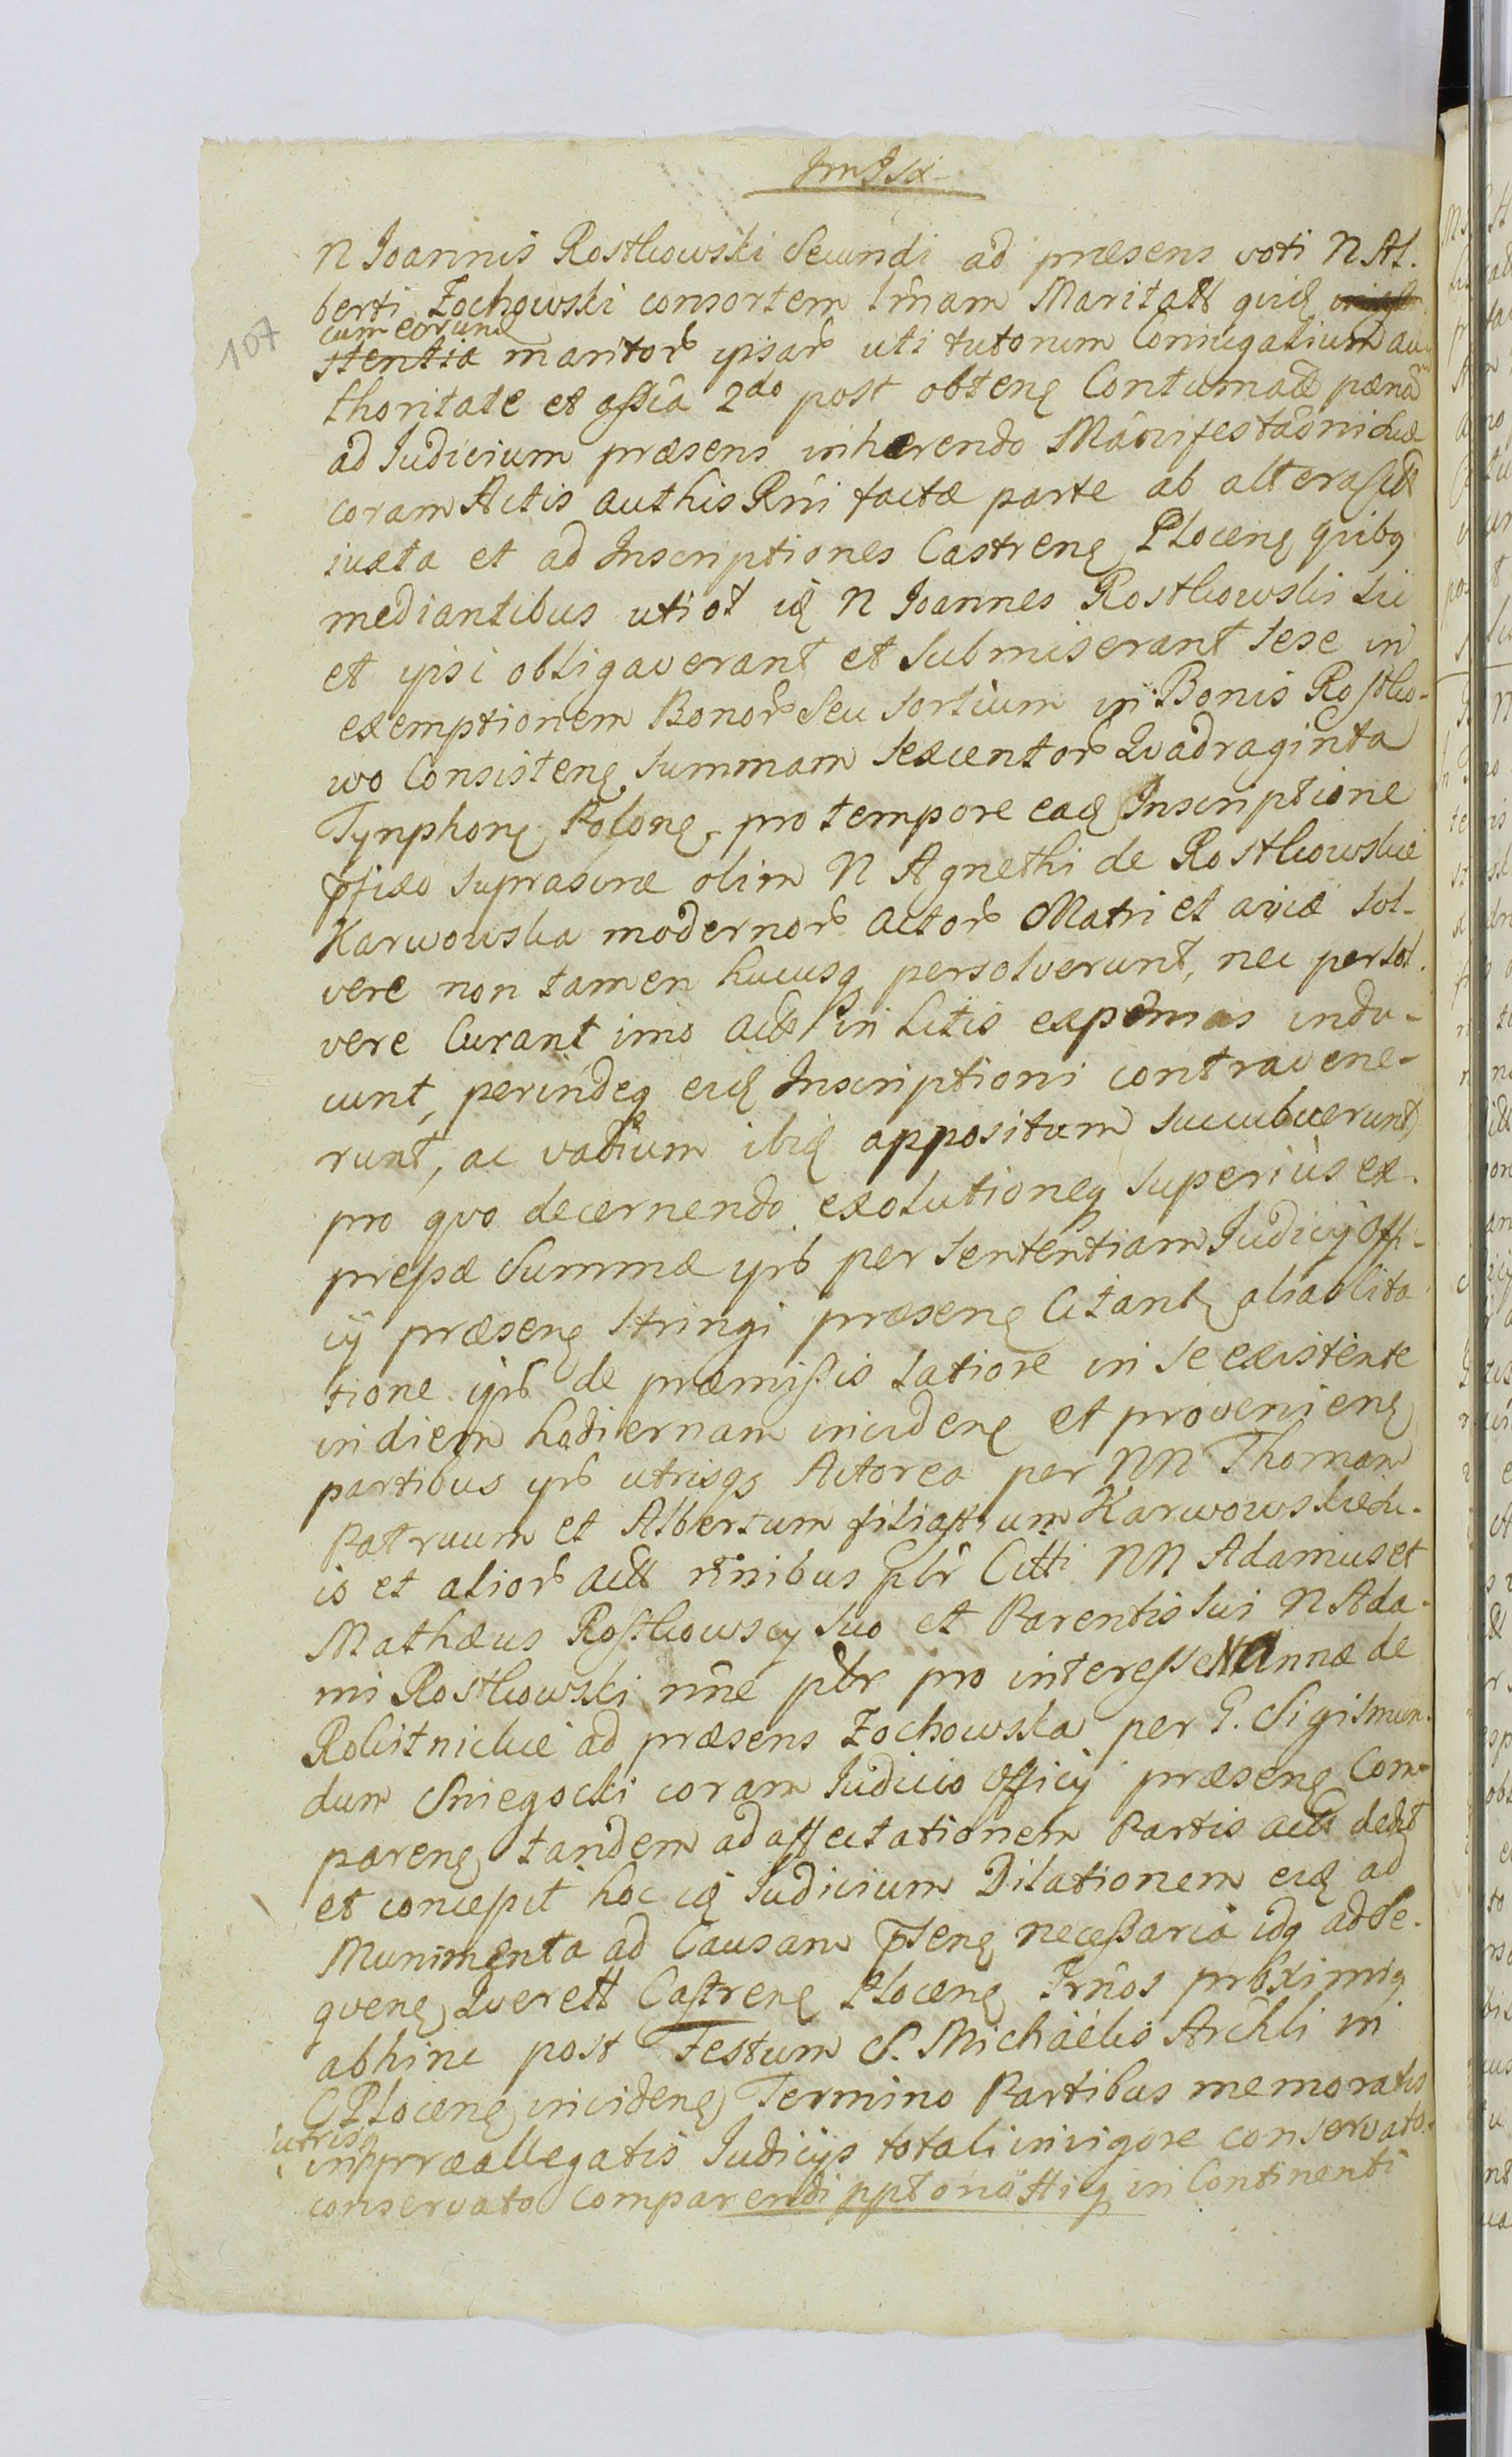 107
N Joannis Rostkowski Secundi ad præsens voti N Al-
berti Zochowski consortem Irnam Maritatt quid
cum eorund
stentia maritor ipsar uti tutorum Coniugalium au-
thoritate et assia 2do post obtenq Contumac pænã
ad Judicium præsens inhærendo Manifestaõni
coram Actis authis Rñi factæ parte ab altera
iuxta et ad Inscriptiones Castrenq Plocenq quibq
mediantibus uti ot id N Joannes Rostkowski sic
et ipsi obligaverant et submiserant sese in
exemptionem Bonor seu sortium in Bonis Rostko-
wo Consistenq summam sexcentor Quadraginta
Tynphonq Polonq, pro tempore ead Inscriptione
pfixo suprascrie olim N Agnethi de Rostkowskie
Karwowska modernor actor Matri et aviæ sol-
vere non tamen hucusq persolverunt, nec persol-
vere curant imo act in Litis expensas indu-
cunt, perindeq eid Inscriptioni contravene-
runt, ac vadium ibid appositum succubuerunt,
pro quo decernendo exolutioneq superiùs ex-
pressæ Summæ ipsis per sententiam Judicij Offi-
cij præsenq stringi præsenq Citant alia Cita
tione ipsis de præmissis latiore in se existente
in diem hodiernam incidenq et provenienq
partibus ipsis utrisqs Actorea per NN Thomam
Patruum et Albertum filiastrum Karwowskie su-
is et alior act nñibus psr Citti NN Adamus et
Mathæus Rostkowscy suo et Parentis sui N Ada-
mi Rostkowski nñe psr pro interesse N Annæ de
Rokitnickie ad præsens Zochowska per G. Sigismun-
dum Sniegocki coram Judicio Officij præsenq Com-
parenq tandem ad affectationem Partis act dedit
et concepit hoc id Judicium Dilationem eid ad
Munimenta ad Causam pstenq necessaria idq ad Se-
quenq Querell Castrenq Plocenq Trños proximiq
abhinc post Festum S. Michaëlis Archli in
C Plocenq incidenq Termino Partibus memoratis
utrisq
in præallegatis Judicijs totali in vigore conservato.
conservato comparendi pptonõttiq in Continenti